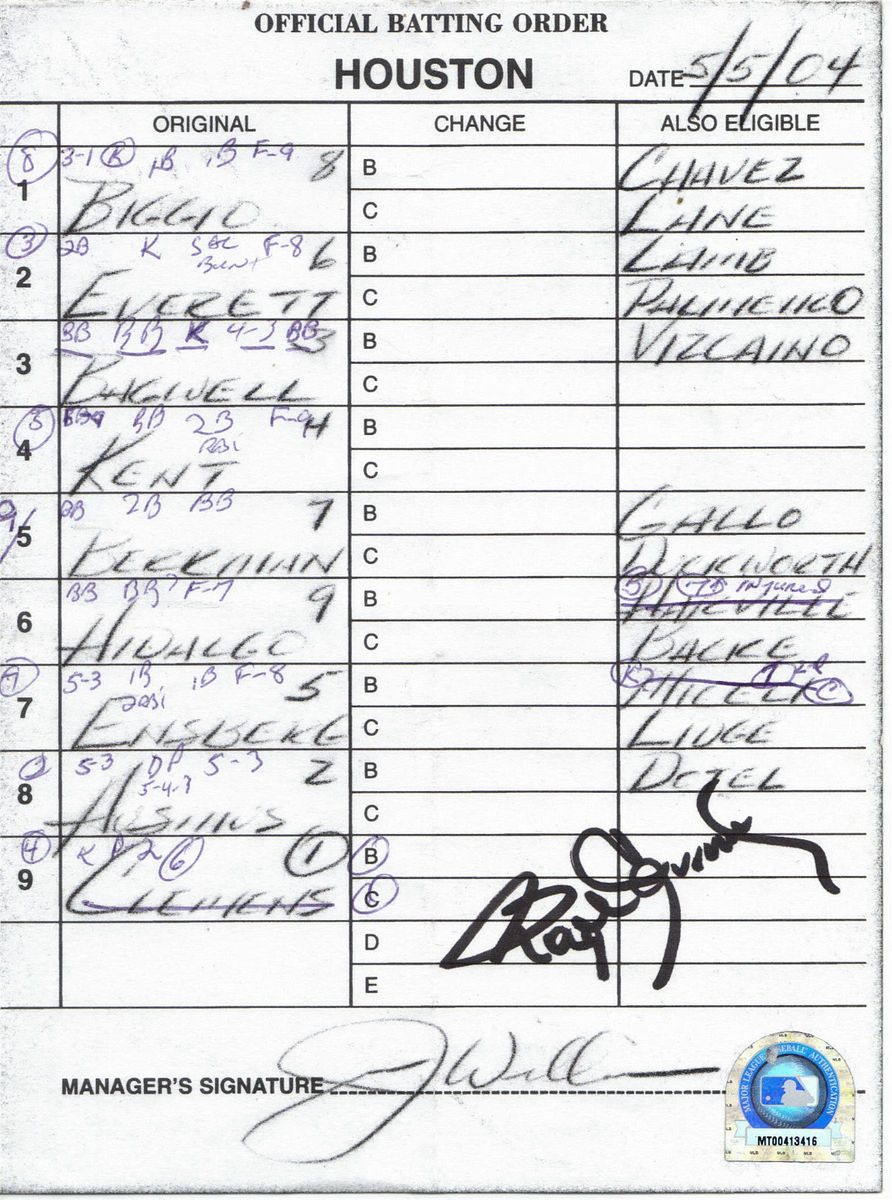 OFFICIAL BATTING ORDER
HOUSTON
DATE 5/5/04
ORIGINAL CHANGE ALSO ELIGIBLE
8 3-1 1B 1B F-9 8 B CHAVEZ
1 BIGGIO C LANE
3 2B K SAC F-8 6 B LAMB
BUNT
2 EVERETT C PALMEIRO
BB BB K 4-3 BB 3 B VIZCAINO
3 BAGWELL C
5 BB BB 2B F-9 4 B
RBI
4 KENT C
BB 2B BB 7 B GALLO
5 BERKMAN C DUCKWORTH
BB BB F-7 9 B INJURED
HARVILLE
6 HIDALGO C BACKE
5-3 1B 1B F-8 5 B MICELI
2RBI
7 ENSBERG C LIDGE
5-3 DP 5-3 2 B DOTEL
5-4-3
8 AUSMUS C
4 K 6 1 B
9 CLEMENS C
D
E
MANAGER'S SIGNATURE
MAJOR LEAGUE BASEBALL AUTHENTICATION
MT00413416